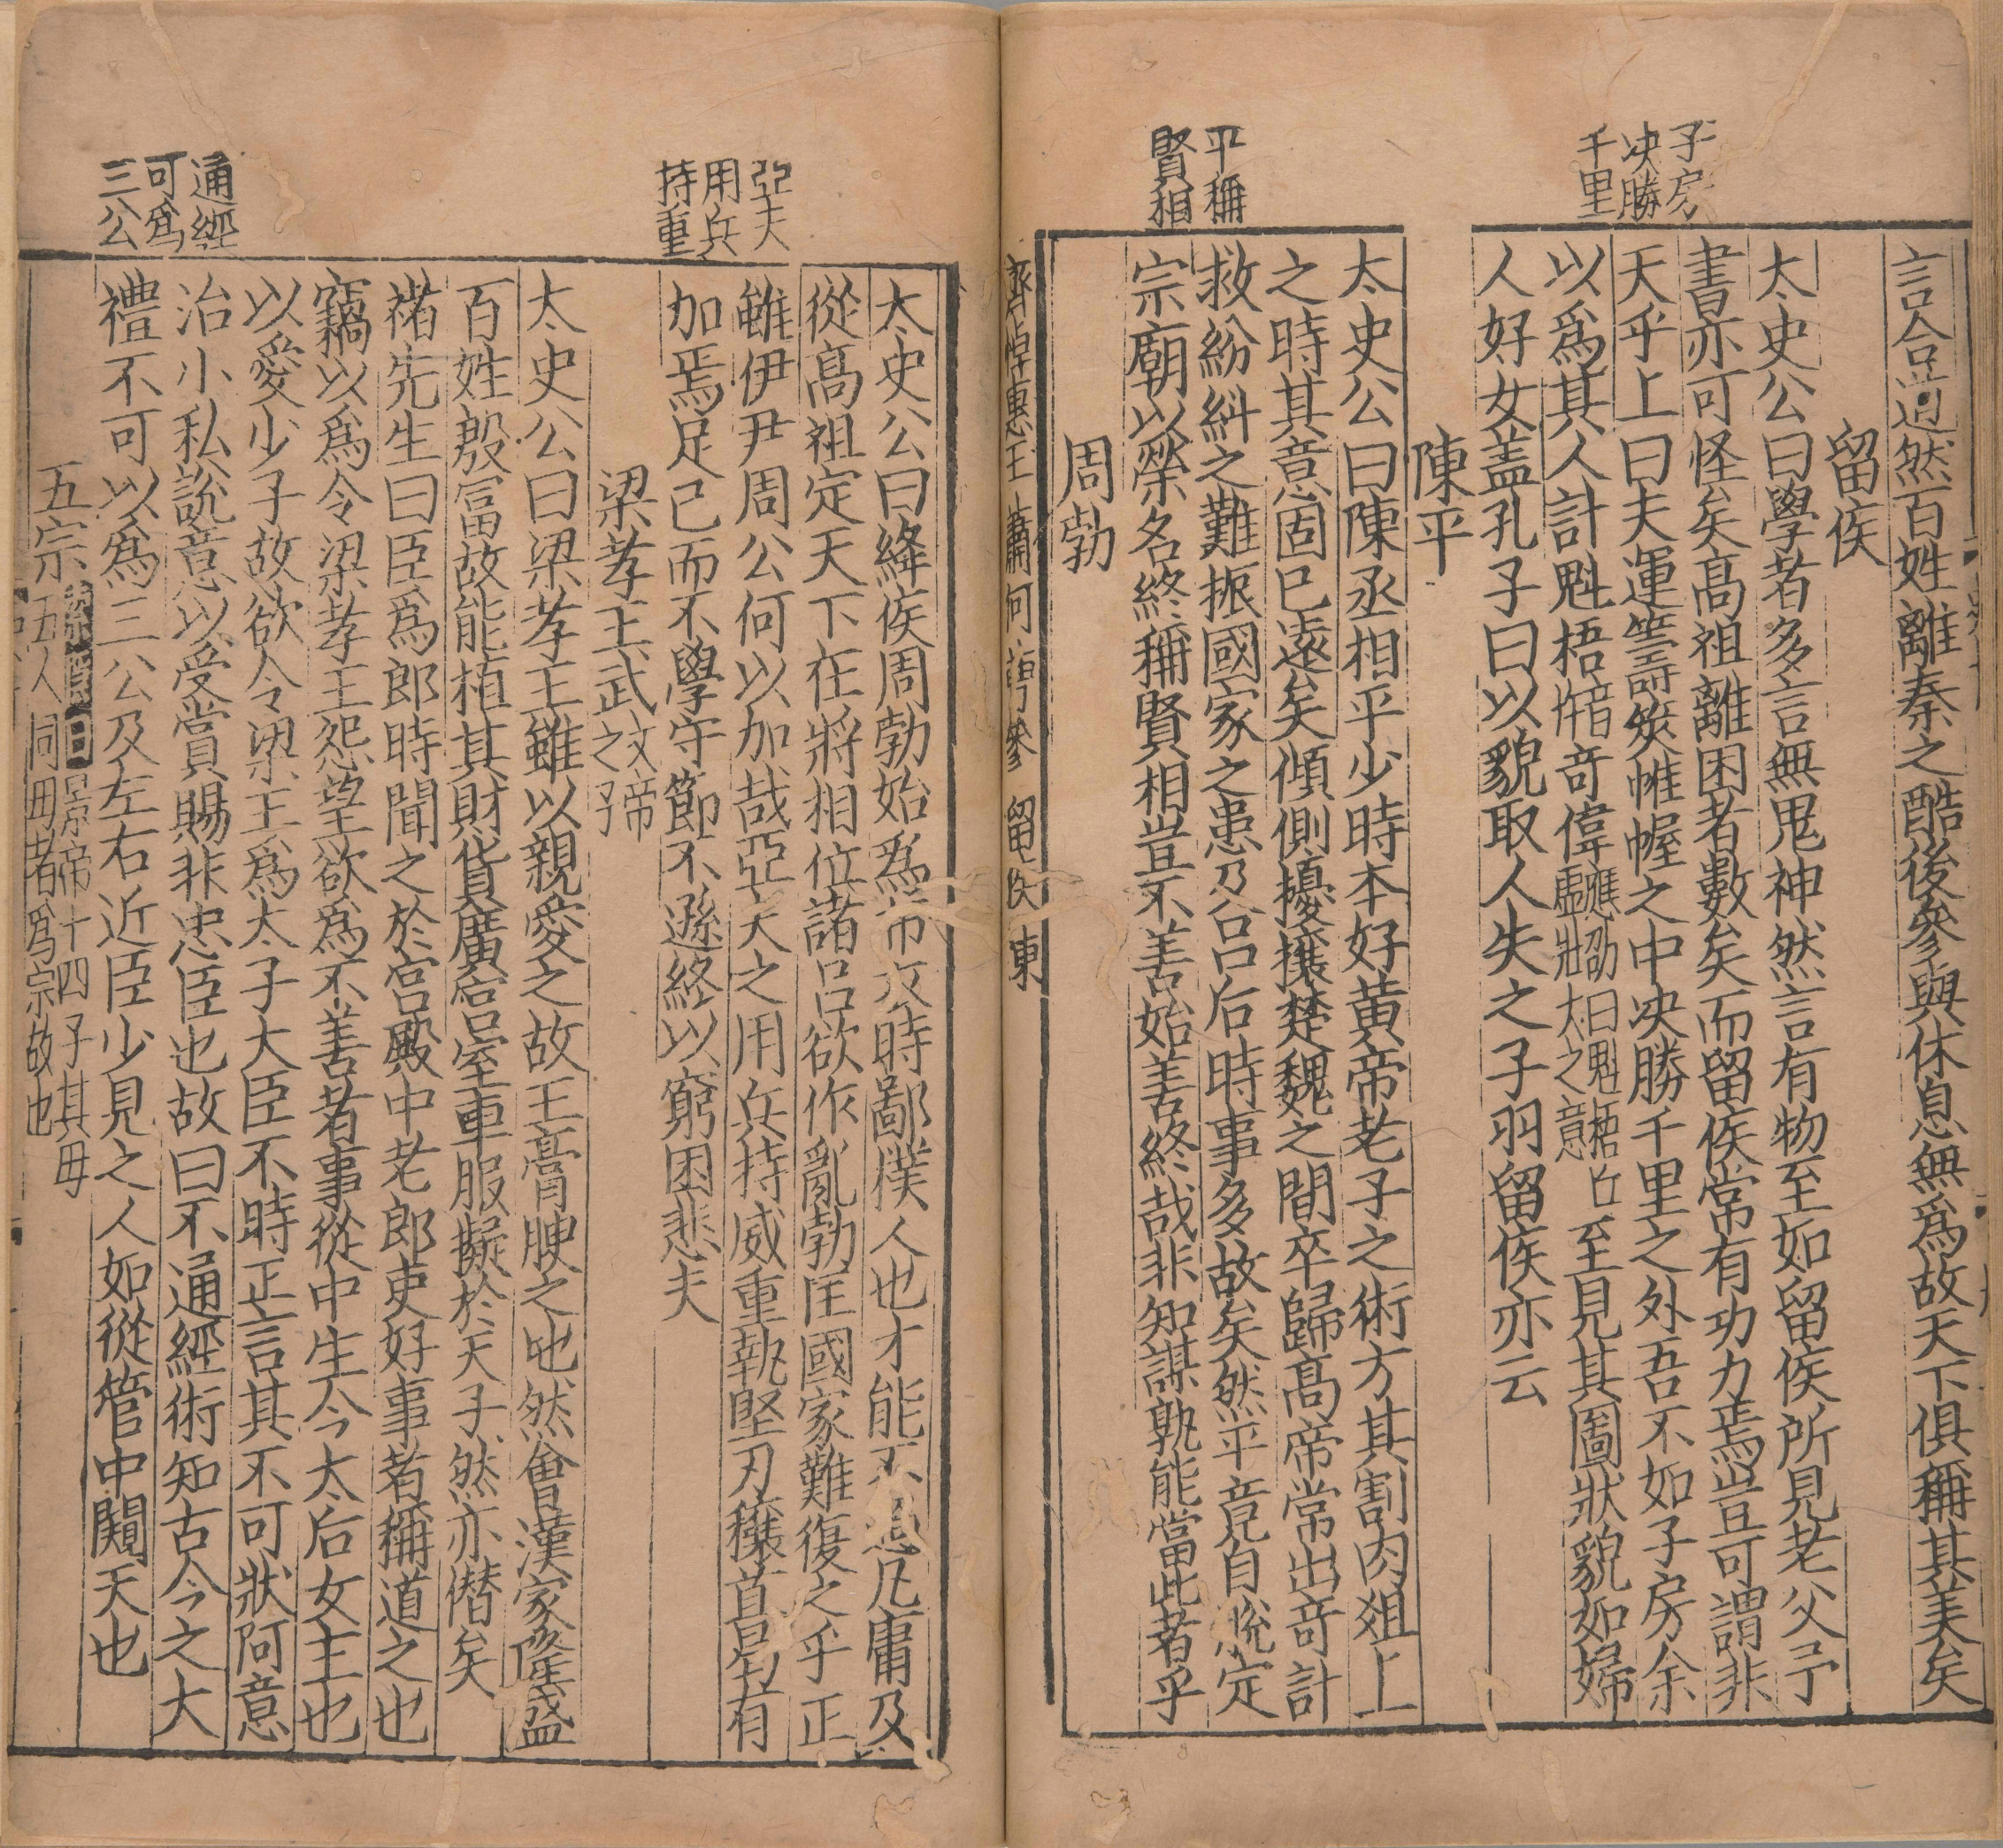 子房
决勝
千里
平稱
賢相
言合道然百姓離秦之酷後參與休息無爲故天下俱稱其美矣
留侯
太史公曰學者多言無鬼神然言有物至如留侯所見老父予
書亦可怪矣高祖離困者數矣而留侯常有功力焉豈可謂非
天乎上曰夫運籌筴帷幄之中决勝千里之外吾不如子房余
以爲其人計魁梧音奇偉應劭曰魁梧丘虛壯大之意至見其圖狀貌如婦
人好女盖孔子曰以貌取人失之子羽留侯亦云
陳平
太史公曰陳丞相平少時本好黃帝老子之術方其割肉爼上
之時其意固已遠矣傾側擾攘楚魏之間卒歸高帝常出奇計
救紛糾之難振國家之患乃呂后時事多故矣然平竟自脫定
宗廟以榮名終稱賢相豈不善始善終哉非知謀孰能當此者乎
周勃
齊悼惠王 蕭何 曹參 留侯 東
亞夫
用兵
持重
通經
可爲
三公
太史公曰絳侯周勃始爲布衣時鄙僕人也才能不過凡庸及
從高祖定天下在將相位諸呂欲作亂勃匡國家難復之乎正
雖伊尹周公何以加哉亞夫之用兵持威重執堅刃穰苴曷有
加焉足已而不學守節不遜終以窮困悲夫
梁孝王武文帝之子
太史公曰梁孝王雖以親愛之故王膏腴之地然會漢家隆盛
百姓殷富故能植其財貨廣宮室車服擬於天子然亦僭矣
褚先生曰臣爲郎時聞之於宮殿中老郎吏好事者稱道之也
竊以爲令梁孝王怨望欲爲不善者事從中生今太后女主也
以愛少子故欲令梁王爲太子大臣不時正言其不可狀阿意
治小私說意以受賞賜非忠臣也故曰不通經術知古今之大
禮不可以爲三公及左右近臣少見之人如從管中闚天也
五宗索隱曰景帝十四子其毋五人同毋者爲宗故也